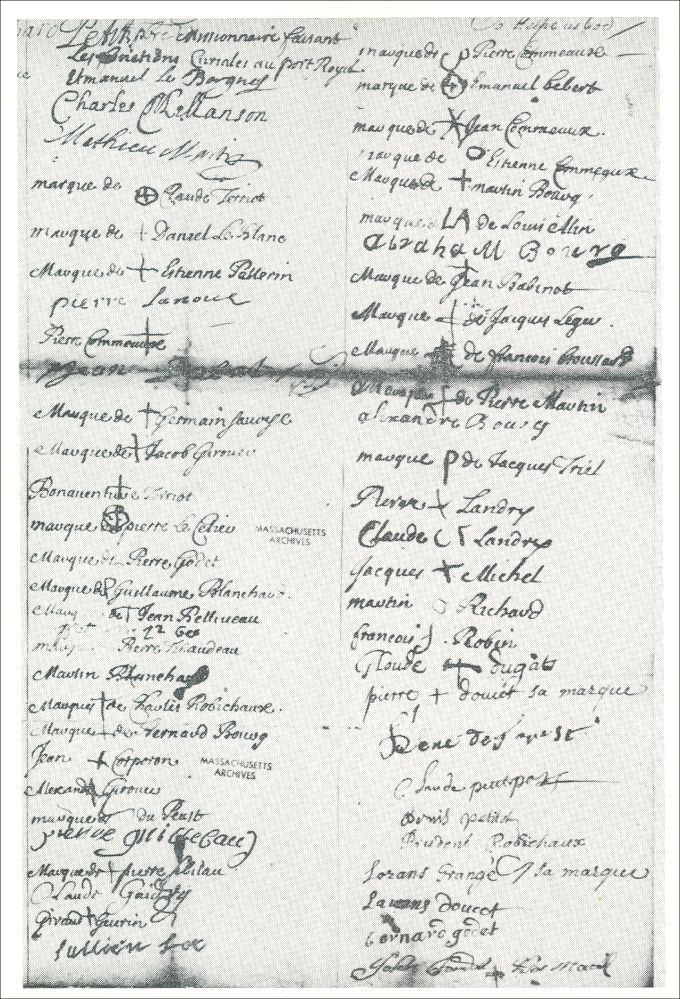 missionnaire faisant
Les fonctions Curiales au port Royal
Emanuel Le Borgne
Charles Mellanson
Mathieu Martin
marque de Claude Terriot
marque de + Daniel Le blanc
Marque de + Estienne Pellerin
pierre lanoue
Pierre Commeaux
Jean
Marque de + Germain Savoye
Marque de Jacob Girouer
Bonaventure Terriot
marque pierre le
MASSACHUSETTS
ARCHIVES
Marque de Pierre Godet
Marque de Guillaume Blanchard.
Marq de Jean Belliveau
Pierre Thibaudeau
Martin Blanchard
Marque de Charles Robichaux.
Marque + de Bernard Bourg
Jean + Corporon
MASSACHUSETTS
ARCHIVES
Alexandre Girouer
marque Du Peust
pierre guillebau
Marque de + pierre
Claude
Giraud + Guerin
Jullien
marque de Pierre Commeaux
marque de Emanuel hebert
marque de X Jean Commeaux.
marque de O Estienne Commeaux
Marque de + martin Bourg
marque LA de Louis Allin
abraham Bourg
Marque de Jean Babinot
Marque + de Jacques Leger.
Marque de francois Broussard
Marque + de Pierre Martin
alexandre Bourg
marque P de Jacques Triel
Pierre + Landry
Claude C Landry
Jacques + Michel
martin Richard
francois Robin
Cloude + dugats
pierre + doucet sa marque
Rene de forest
Claude petitpas
petit
Prudent Robichaux
Lorans Grange sa marque
Lawens doucet
bernard godet